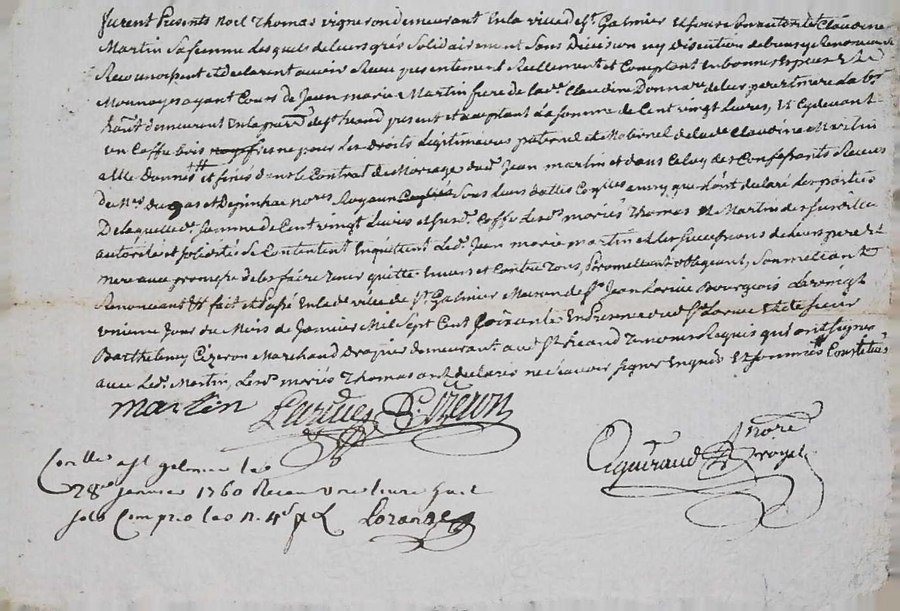 furent Presents noel Thomas vigneron demeurant En la ville de st. Galmier Et sous son autorité Claudine
Martin sa femme Lesquels de leurs grés Solidairement sans Division ny Discution de biens y Renonceant
Reconnoissent et declarent avoir Receu presentement Reellement et Comptant En bonnes Espèces Et
Monnoye ayant Cours de Jean marie Martin frere de lad. Claudine Donnataire de leur pere et mere Lab
demeurant En la parr. de st. present et acceptant La somme de Cent vingt Livres, Et Cy devant
un Coffre bois fresne pour Les Droits Légitimaires paternel et Maternel de lad. Claudine Martin
a Elle Donnés et fixés dans le Contrat de Mariage dud. Jean martin et dans Celuy des Confessants Receus
de Mrs. et nores. Royaux Sous Leurs dattes ainsy que L'ont declaré Les parties
De laquelle d. somme de Cent vingt Livres et susd. Coffre Lesd. mariés Thomas et Martin de
autorité et solidité Se Contentent En quittent Led. Jean marie martin et les successions de leurs pere Et
mere avec promesse de les faire tenir quitte Envers et Contre Tous, Promettant obligeant, Soumettant
Renonceant &c fait et passé En lad. ville de St. Galmier Maison de sr. Jean Larue Bourgeois Le vingt
unieme Jour du Mois de Janvier Mil Sept Cent soixante En Presence dud. Sr. Larue Et de sieur
Barthelemy Cizeron Marchand Drapier demeurant aud. st. Temoins Requis qui ont signés
avec Led. Martin, Lesd. mariés Thomas ont declarés ne sçavoir signer Enquis Et sommés
martin Larue B. Cizeron
Conllé a st galmier le
28e. janvier 1760 Receu une livre huit
sols Compris les n. 4 d. p. L
nore.
royal